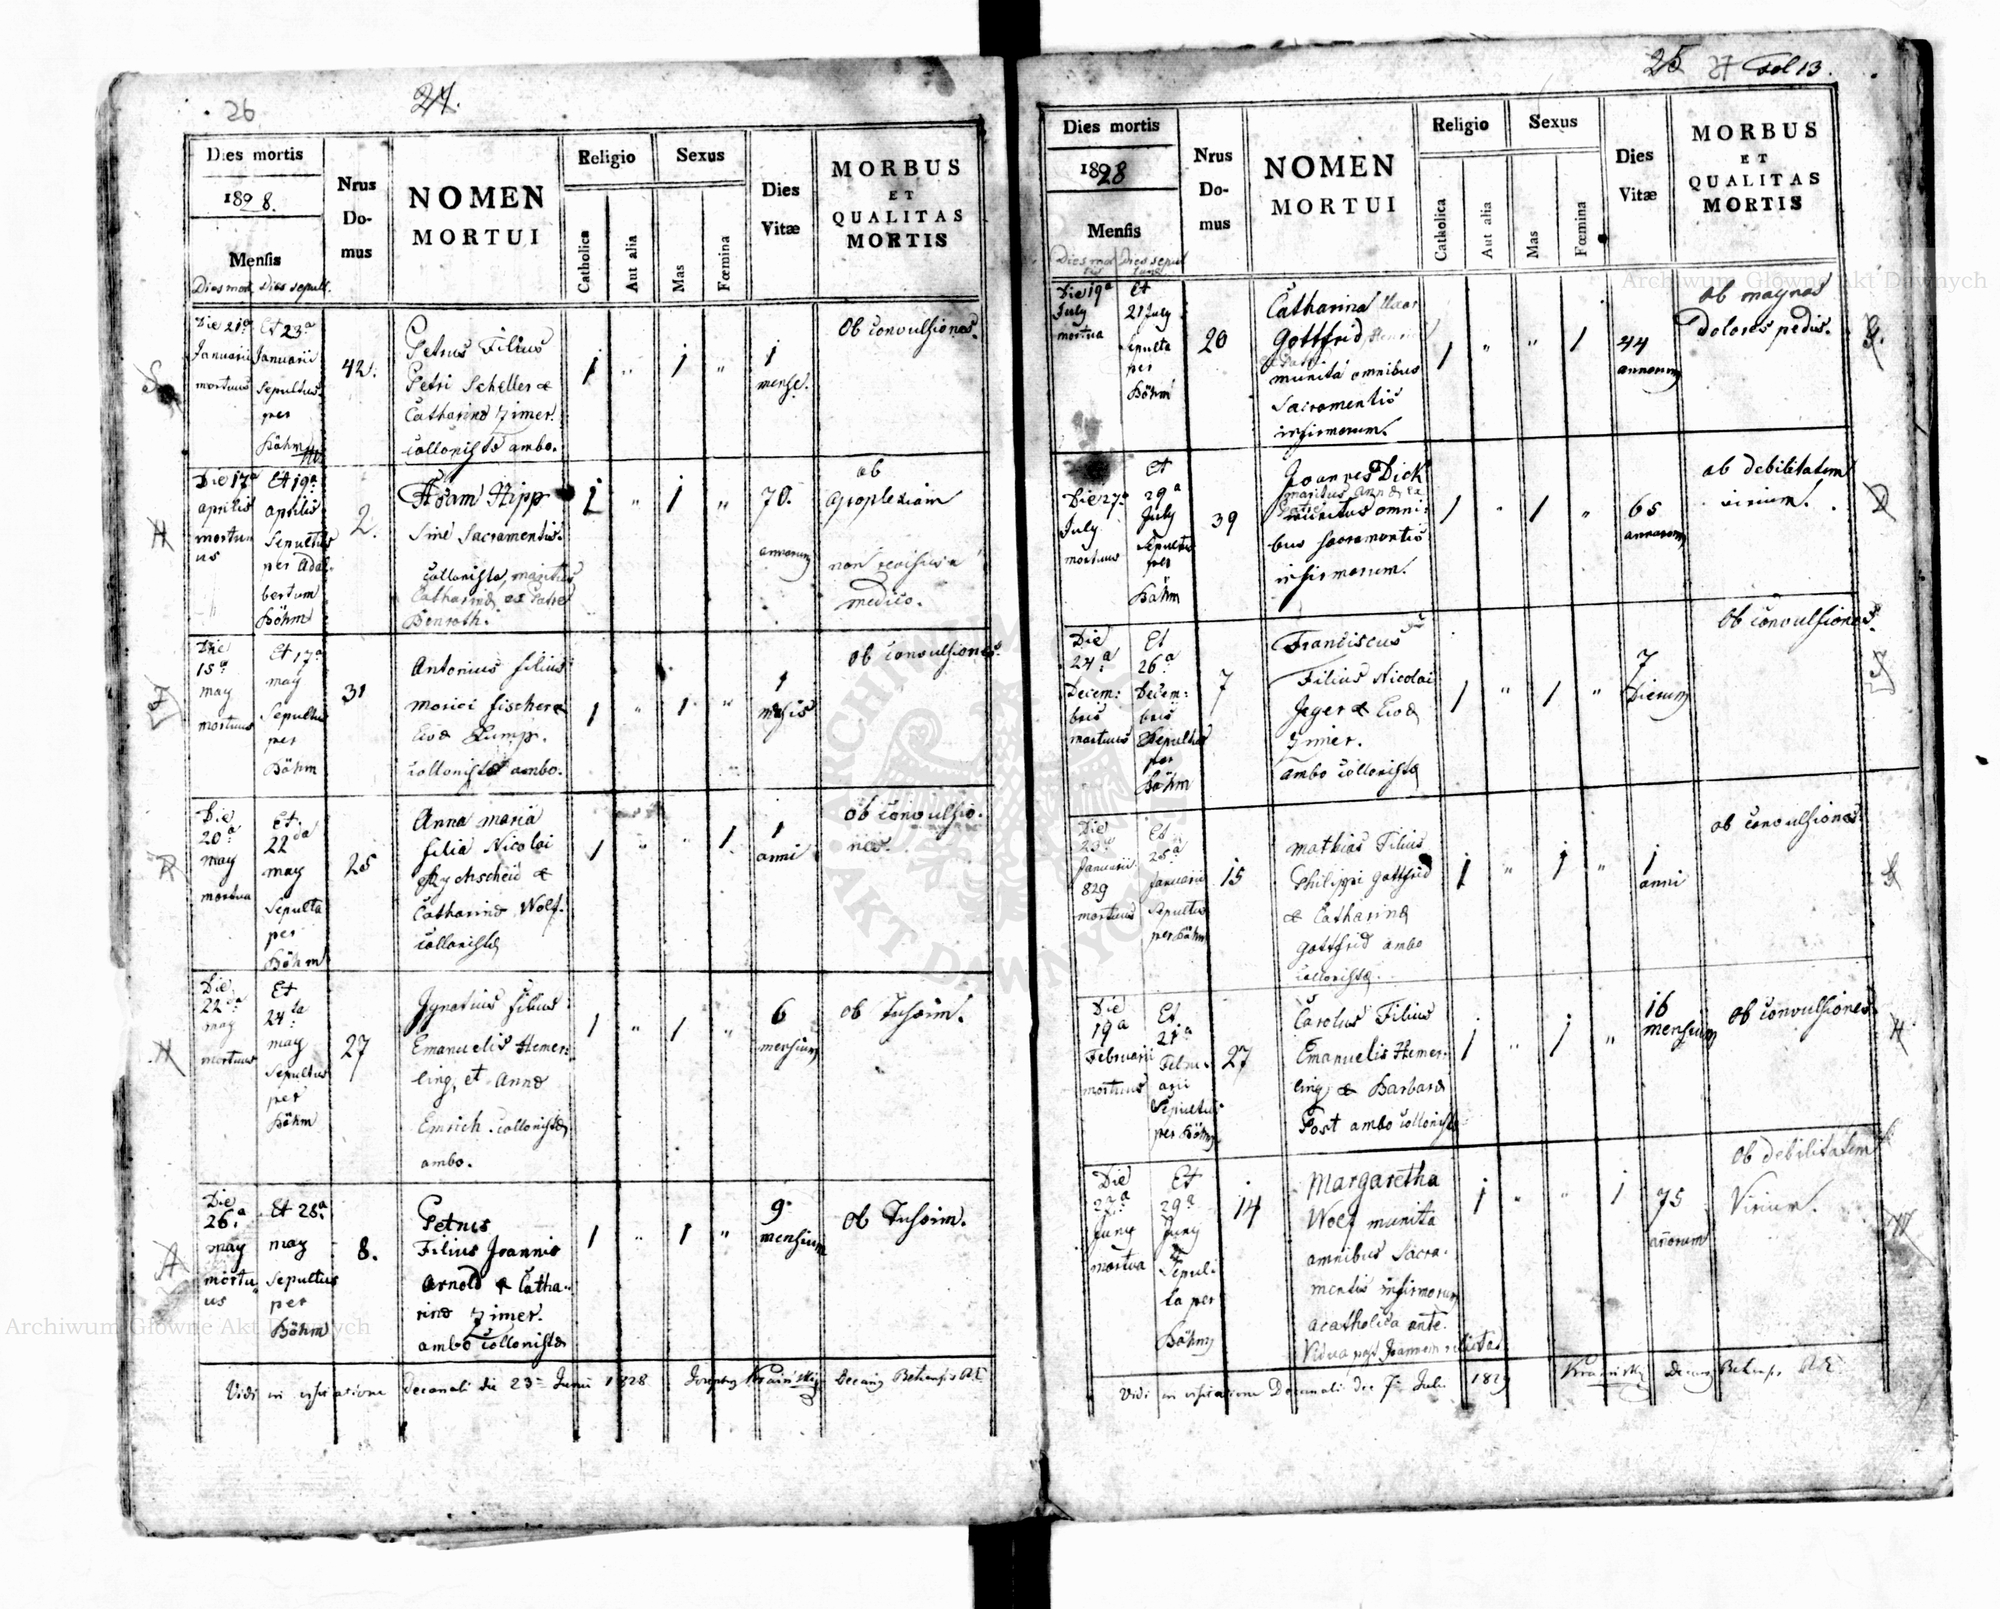 26
24.
Dies mortis
1828.
Mensis
Dies mor. Dies sepult.
Nrus
Do-
mus
NOMEN
MORTUI
Religio
Catholica
Aut alia
Sexus
Mas
Fœmina
Dies
Vitæ
MORBUS
ET
QUALITAS
MORTIS
Die 21a
Januarii
mortuus
Et 23a
Januarii
Sepultus
per
Böhm
42.
Petrus Filius
Petri Scheller &
Catharina Zimer.
collonista ambo.
1
"
1
"
1
mense.
Ob convulsiones.
Die 17a
aprilis
mortu
us
Et 19a
aprilis
Sepultus
per Adal-
bertum
Böhm
2.
Adam Hipp
Sine Sacramentis.
collonista, maritus
Catharina ex Patre
Benroth.
1
"
1
"
70.
annorum
ob
apoplexiam
non revisus a
medico.
Die
15a
may
mortuus
Et 17a
may
Sepultus
per
Böhm
31
Antonius filius
Morici fischer &
Eva Lump.
collonista ambo.
1
"
1
"
1
mensis
ob convulsiones.
Die
20a
may
mortua
Et
22da
may
Sepulta
per
Böhm
25
Anna maria
filia Nicolai
&
Catharina Wolf.
collonista
1
"
"
1
1
anni
ob convulsio-
nes.
Die
22da
may
mortuus
Et
24ta
may
Sepultus
per
Böhm
27
Ignatius filius
Emanuelis Hemer-
ling, et Anna
Emrich collonista
ambo.
1
"
1
"
6
mensium
ob Tussim.
Die
26a
may
mortu
us
Et 28a
may
Sepultus
per
Böhm
8.
Petrus
Filius Joannis
Arnold & Catha-
rina Zimer.
ambo collonista
1
"
1
"
9
mensium
ob Tussim.
Vidi in visitatione Decanali die 23 Junii 1828 Krainski
25 27 Fol 13.
Dies mortis
1828
Mensis
Dies mor
tis
Dies sepul
turae
Nrus
Do-
mus
NOMEN
MORTUI
Religio
Catholica
Aut alia
Sexus
Mas
Fœmina
Dies
Vitæ
MORBUS
ET
QUALITAS
MORTIS
Die 19a
July
mortua
Et
21 July
Sepulta
per
Böhm
20
Catharina
Gottfrid
munita omnibus
Sacramentis
infirmorum.
1
"
"
1
44
annorum
ob magnos
Dolores pedis.
G.
Die 27a
July
mortuus
Et
29a
July
Sepultus
per
Böhm
39
Joannes Dick
munitus omni-
bus sacramentis
infirmorum.
1
"
1
"
65
annorum
ob debilitatem
virium.
D
Die
24a
Decem-
bris
mortuus
Et
26a
Decem-
bris
Sepultus
per
Böhm
7
Franciscus
Filius Nicolai
Jeger & Eva
Zimer.
ambo collonista
1
"
1
"
7
Dierum
Ob convulsiones.
Die
23a
Januarii
829
mortuus
Et
25a
Januarii
Sepultus
per Böhm
15
Mathias Filius
Philippi Gottfrid
& Catharina
Gottfrid ambo
collonista.
1
"
1
"
1
anni
ob convulsiones.
Die
19a
Februarii
mortuus
Et
21a
Febru-
arii
Sepultus
per Böhm
27
Carolus Filius
Emanuelis Hemer-
ling & Barbara
Post ambo collonista
1
"
1
"
16
mensium
ob convulsiones
H
Die
27a
Juny
mortua
Et
29a
Juny
Sepul-
ta per
Böhm
14
Margaretha
Wolf munita
omnibus Sacra-
mentis infirmorum
acatholica ante.
Vidua post Joannem relicta
1
"
"
1
75
anorum
Ob debilitatem
Virium.
W
Vidi in visitatione Decanali die 7 Julii 1829 Krainski
Archiwum Główne Akt Dawnych
Archiwum Główne Akt Dawnych
ARCHIWUM GŁÓWNE AKT DAWNYCH